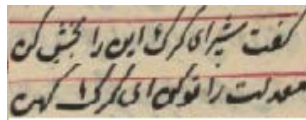 گفت شیر ای گرگ این را بخش کن
معدلت را نو کن ای گرگ کهن